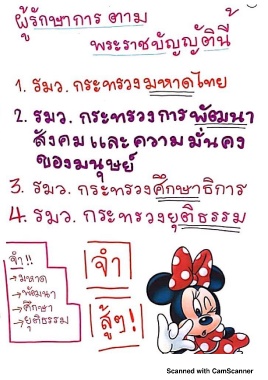 ผู้รักษาการ ตาม
พระราชบัญญัตินี้
1. รมว. กระทรวงมหาดไทย
2. รมว. กระทรวงการพัฒนา
สังคม และ ความ มั่นคง
ของมนุษย์
3. รมว. กระทรวงศึกษาธิการ
4. รมว. กระทรวงยุติธรรม
จำ!!
→มหาด
→พัฒนา
→ศึกษา
→ยุติธรรม
จำ
สู้ๆ!
Scanned with CamScanner